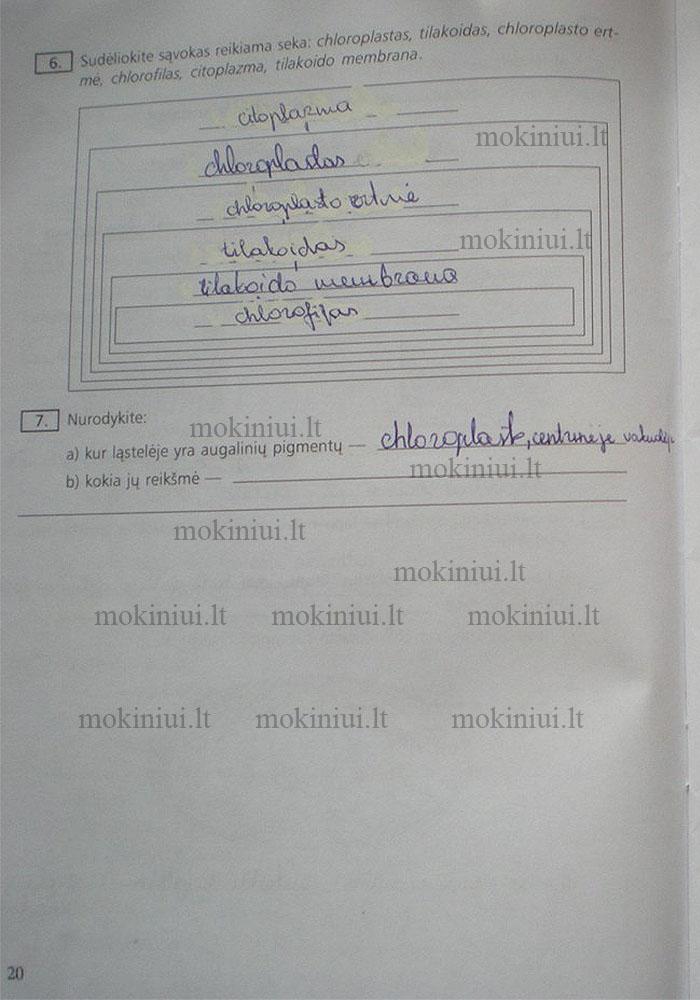 6. Sudėliokite sąvokas reikiama seka: chloroplastas, tilakoidas, chloroplasto ert-
mė, chlorofilas, citoplazma, tilakoido membrana.
citoplazma
mokiniui.lt
chloroplastas
chloroplasto ertmė
tilakoidas
mokiniui.lt
tilakoido membrana
chlorofilas
7. Nurodykite:
mokiniui.lt
a) kur ląstelėje yra augalinių pigmentų — chloroplaste, centrinėje vakuolėje
mokiniui.lt
b) kokia jų reikšmė —
mokiniui.lt
mokiniui.lt
mokiniui.lt mokiniui.lt mokiniui.lt
mokiniui.lt mokiniui.lt mokiniui.lt
20